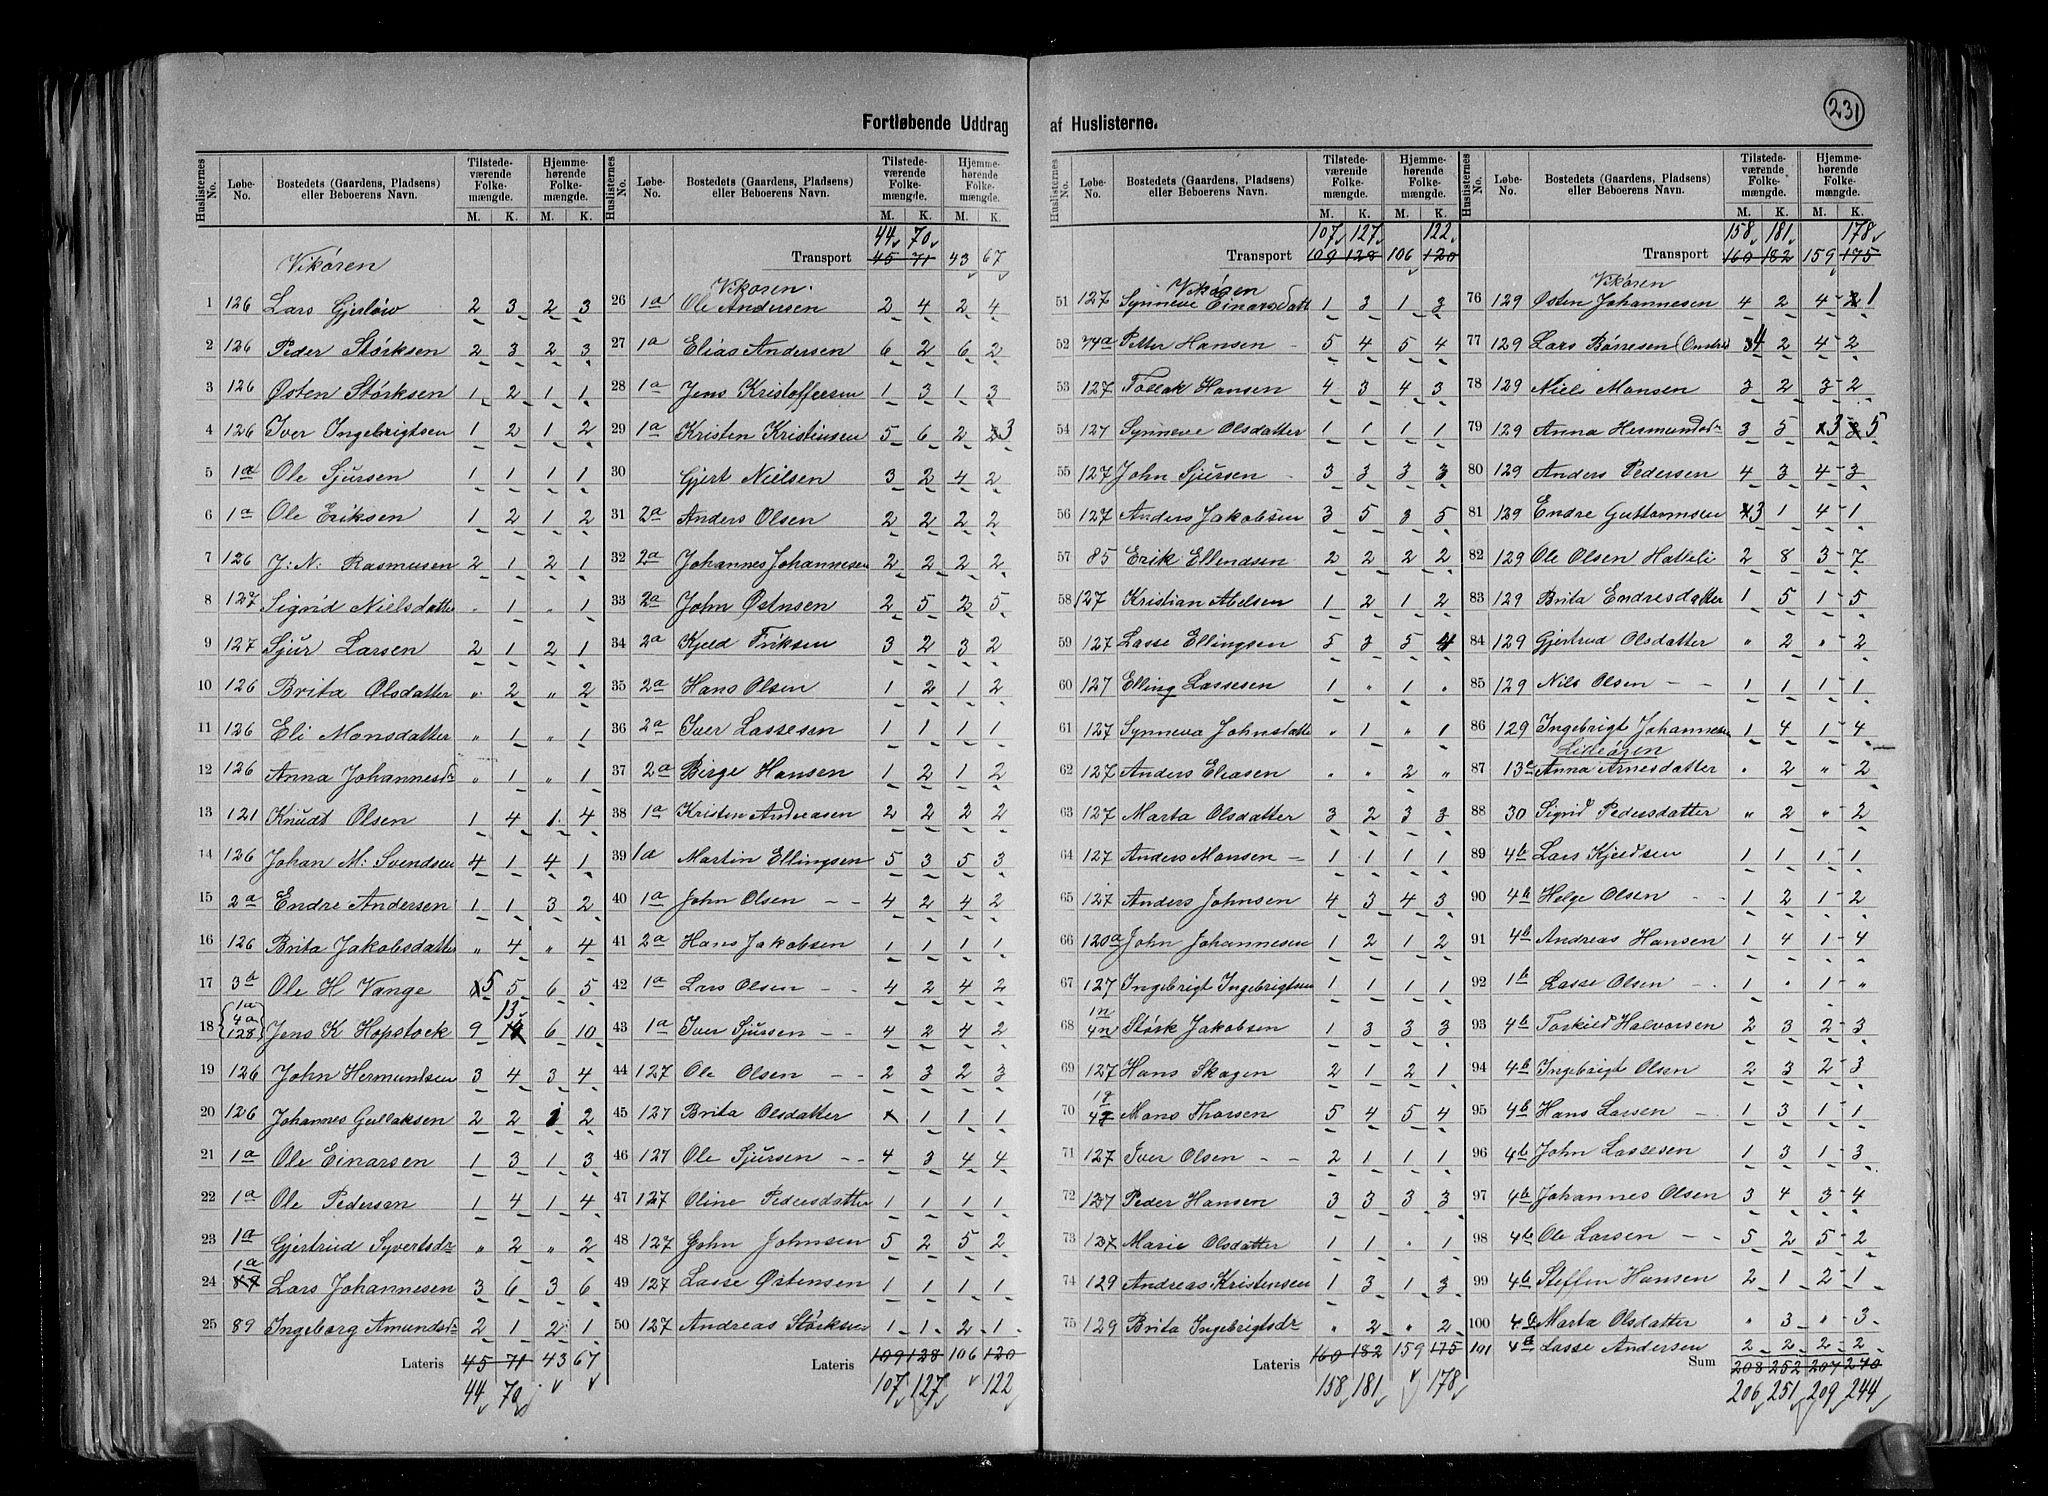 231
Fortløbende Uddrag af Huslisterne.
Huslisternes No. Løbe-No. Bostedets (Gaardens, Pladsens) eller Beboerens Navn. Tilstedeværende Folkemængde. M. K. Hjemmehørende Folkemængde. M. K.
Vikören
1 126 Lars Gjerløw 2 3 2 3
2 126 Peder Störksen 2 3 2 3
3 126 Østen Störksen 1 2 1 1
4 126 Iver Ingebrigtsen 1 2 1 2
5 1a Ole Sjursen 1 1 1 1
6 1a Ole Eriksen 1 2 1 2
7 126 J: N: Rasmusen 2 1 2 1
8 127 Sigrid Nielsdatter " 1 " 1
9 127 Sjur Larsen 2 1 2 1
10 126 Brita Olsdatter " 2 " 2
11 126 Eli Monsdatter " 1 " 1
12 126 Anna Johannesdr " 1 " 1
13 121 Knudt Olsen 1 4 1 4
14 126 Johan M: Svendsen 4 1 4 1
15 2a Endre Andersen 1 1 3 2
16 126 Brita Jakobsdatter " 4 " 4
17 3a Ole H Vange 5 5 6 5
18 1a 4a 128 Jens K Hopstock 9 13 6 10
19 126 John Hermundsen 3 4 3 4
20 126 Johannes Gullaksen 2 2 1 2
21 1a Ole Einarsen 1 3 1 3
22 1a Ole Pedersen 1 4 1 4
23 1a Gjertrud Syvertsdr " 2 " 2
24 1a Lars Johannesen 3 6 3 6
25 89 Ingeborg Amundsdr 2 1 2 1
Lateris 45 71 43 67
44 70
Huslisternes No. Løbe-No. Bostedets (Gaardens, Pladsens) eller Beboerens Navn. Tilstedeværende Folkemængde. M. K. Hjemmehørende Folkemængde. M. K.
44 70
Transport 45 71 43 67
Vikören
26 1a Ole Andersen 2 4 2 4
27 1a Elias Andersen 6 2 6 2
28 1a Jens Kristoffersen 1 3 1 3
29 1a Kristen Kristensen 5 6 2 3
30 Gjert Nielsen 3 2 4 2
31 2a Anders Olsen 2 2 2 2
32 2a Johannes Johannesen 2 2 2 2
33 2a John Østnsen 2 5 2 5
34 2a Kjeld Eriksen 3 2 3 2
35 2a Hans Olsen 1 2 1 2
36 2a Iver Lassesen 1 1 1 1
37 2a Birge Hansen 1 2 1 2
38 1a Kristen Andreasen 2 2 2 2
39 1a Martin Ellingsen 5 3 5 3
40 1a John Olsen 4 2 4 2
41 2a Hans Jakobsen 1 1 1 1
42 1a Lars Olsen 4 2 4 2
43 1a Iver Sjursen 4 2 4 2
44 127 Ole Olsen 2 3 2 3
45 127 Brita Olsdatter 1 1 1
46 127 Ole Sjursen 4 3 4 4
47 127 Oline Pedersdatter 1 1 1 1
48 127 John Johnsen 5 2 5 2
49 127 Lasse Østensen 1 1 1 1
50 127 Andreas Störksen 1 1 2 1
Lateris 109 128 106 120
107 127 122
Huslisternes No. Løbe-No. Bostedets (Gaardens, Pladsens) eller Beboerens Navn. Tilstedeværende Folkemængde. M. K. Hjemmehørende Folkemængde. M. K.
107 127 122
Transport 109 128 106 120
Vikören
51 127 Synneve Einarsdatt 1 3 1 3
52 74a Petter Hansen 5 4 5 4
53 127 Tollak Hansen 4 3 4 3
54 127 Synneve Olsdatter 1 1 1 1
55 127 John Sjursen 3 3 3 3
56 127 Anders Jakobsen 3 5 3 5
57 85 Erik Ellendsen 2 2 2 2
58 127 Kristian Abelsen 1 2 1 2
59 127 Lasse Ellingsen 5 3 5 4
60 127 Elling Lassesen 1 " 1 "
61 127 Synneva Johnsdatte " 1 " 1
62 127 Anders Eliasen " " 2 "
63 127 Marta Olsdatter 3 2 3 3
64 127 Anders Monsen 1 1 1 1
65 127 Anders Johnsen 4 3 4 3
66 120a John Johannesen 1 2 1 2
67 127 Ingebrigt Ingebrigtsen 1 1 1 1
68 1n 4n Störk Jakobsen 1 3 3 3
69 127 Hans Skagen 2 1 2 1
70 Mons Thorsen 5 4 5 4
71 127 Iver Olsen 2 1 1 1
72 127 Peder Hansen 3 3 3 3
73 127 Marie Olsdatter 1 1 " 1
74 129 Andreas Kristensen 1 3 1 3
75 129 Brita Ingebrigtsdr " 2 " 2
Lateris 160 182 159 175
158 181 178
Huslisternes No. Løbe-No. Bostedets (Gaardens, Pladsens) eller Beboerens Navn. Tilstedeværende Folkemængde. M. K. Hjemmehørende Folkemængde. M. K.
158 181 178
Transport 160 182 159 175
Vikören
76 129 Østen Johannesen 4 2 4 1
77 129 Lars Börresen 4 2 4 2
78 129 Niels Monsen 3 2 3 2
79 129 Anna Hermundsdr 3 5 3 5
80 129 Anders Pedersen 4 3 4 3
81 129 Endre Guttormsen 3 1 4 1
82 129 Ole Olsen Hatleli 2 8 3 7
83 129 Brita Endresdatter 1 5 1 5
84 129 Gjertrud Olsdatter " 2 " 2
85 129 Nils Olsen 1 1 1 1
86 129 Ingebrigt Johannesen 1 4 1 4
Litleören
87 Anna Arnesdatter " 2 " 2
88 30 Sigrid Pedersdatter " 2 " 2
89 4b Lars Kjeldsen 1 1 1 1
90 4b Helge Olsen 1 2 1 2
91 4b Andreas Hansen 1 4 1 4
92 1b Lasse Olsen 1 " 1 "
93 4b Torkild Halvorsen 2 3 2 3
94 4b Ingebrigt Olsen 2 3 2 3
95 4b Hans Larsen 1 3 1 1
96 4b John Lassesen 1 3 1 3
97 4b Johannes Olsen 3 4 3 4
98 4b Ole Larsen 5 2 5 2
99 4b Steffen Hansen 2 1 2 1
100 4b Marta Olsdatter " 3 " 3
101 Lasse Andersen 2 2 2 2
Sum 208 252 207 240
206 251 209 244